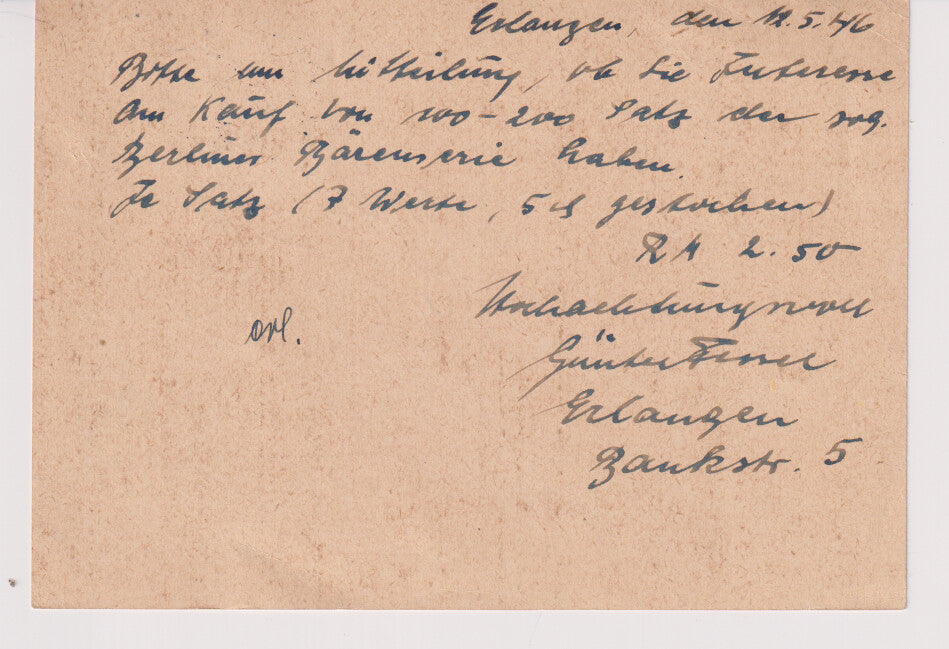 Erlangen, den 12.5.46
Bitte um Mitteilung, ob Sie Interesse
am Kauf von 100-200 Satz der sog.
Berliner Bärenserie haben.
Je Satz (7 Werte, gestochen)
RM 2.50
Hochachtungsvoll
Günter
Erlangen
Bankstr. 5